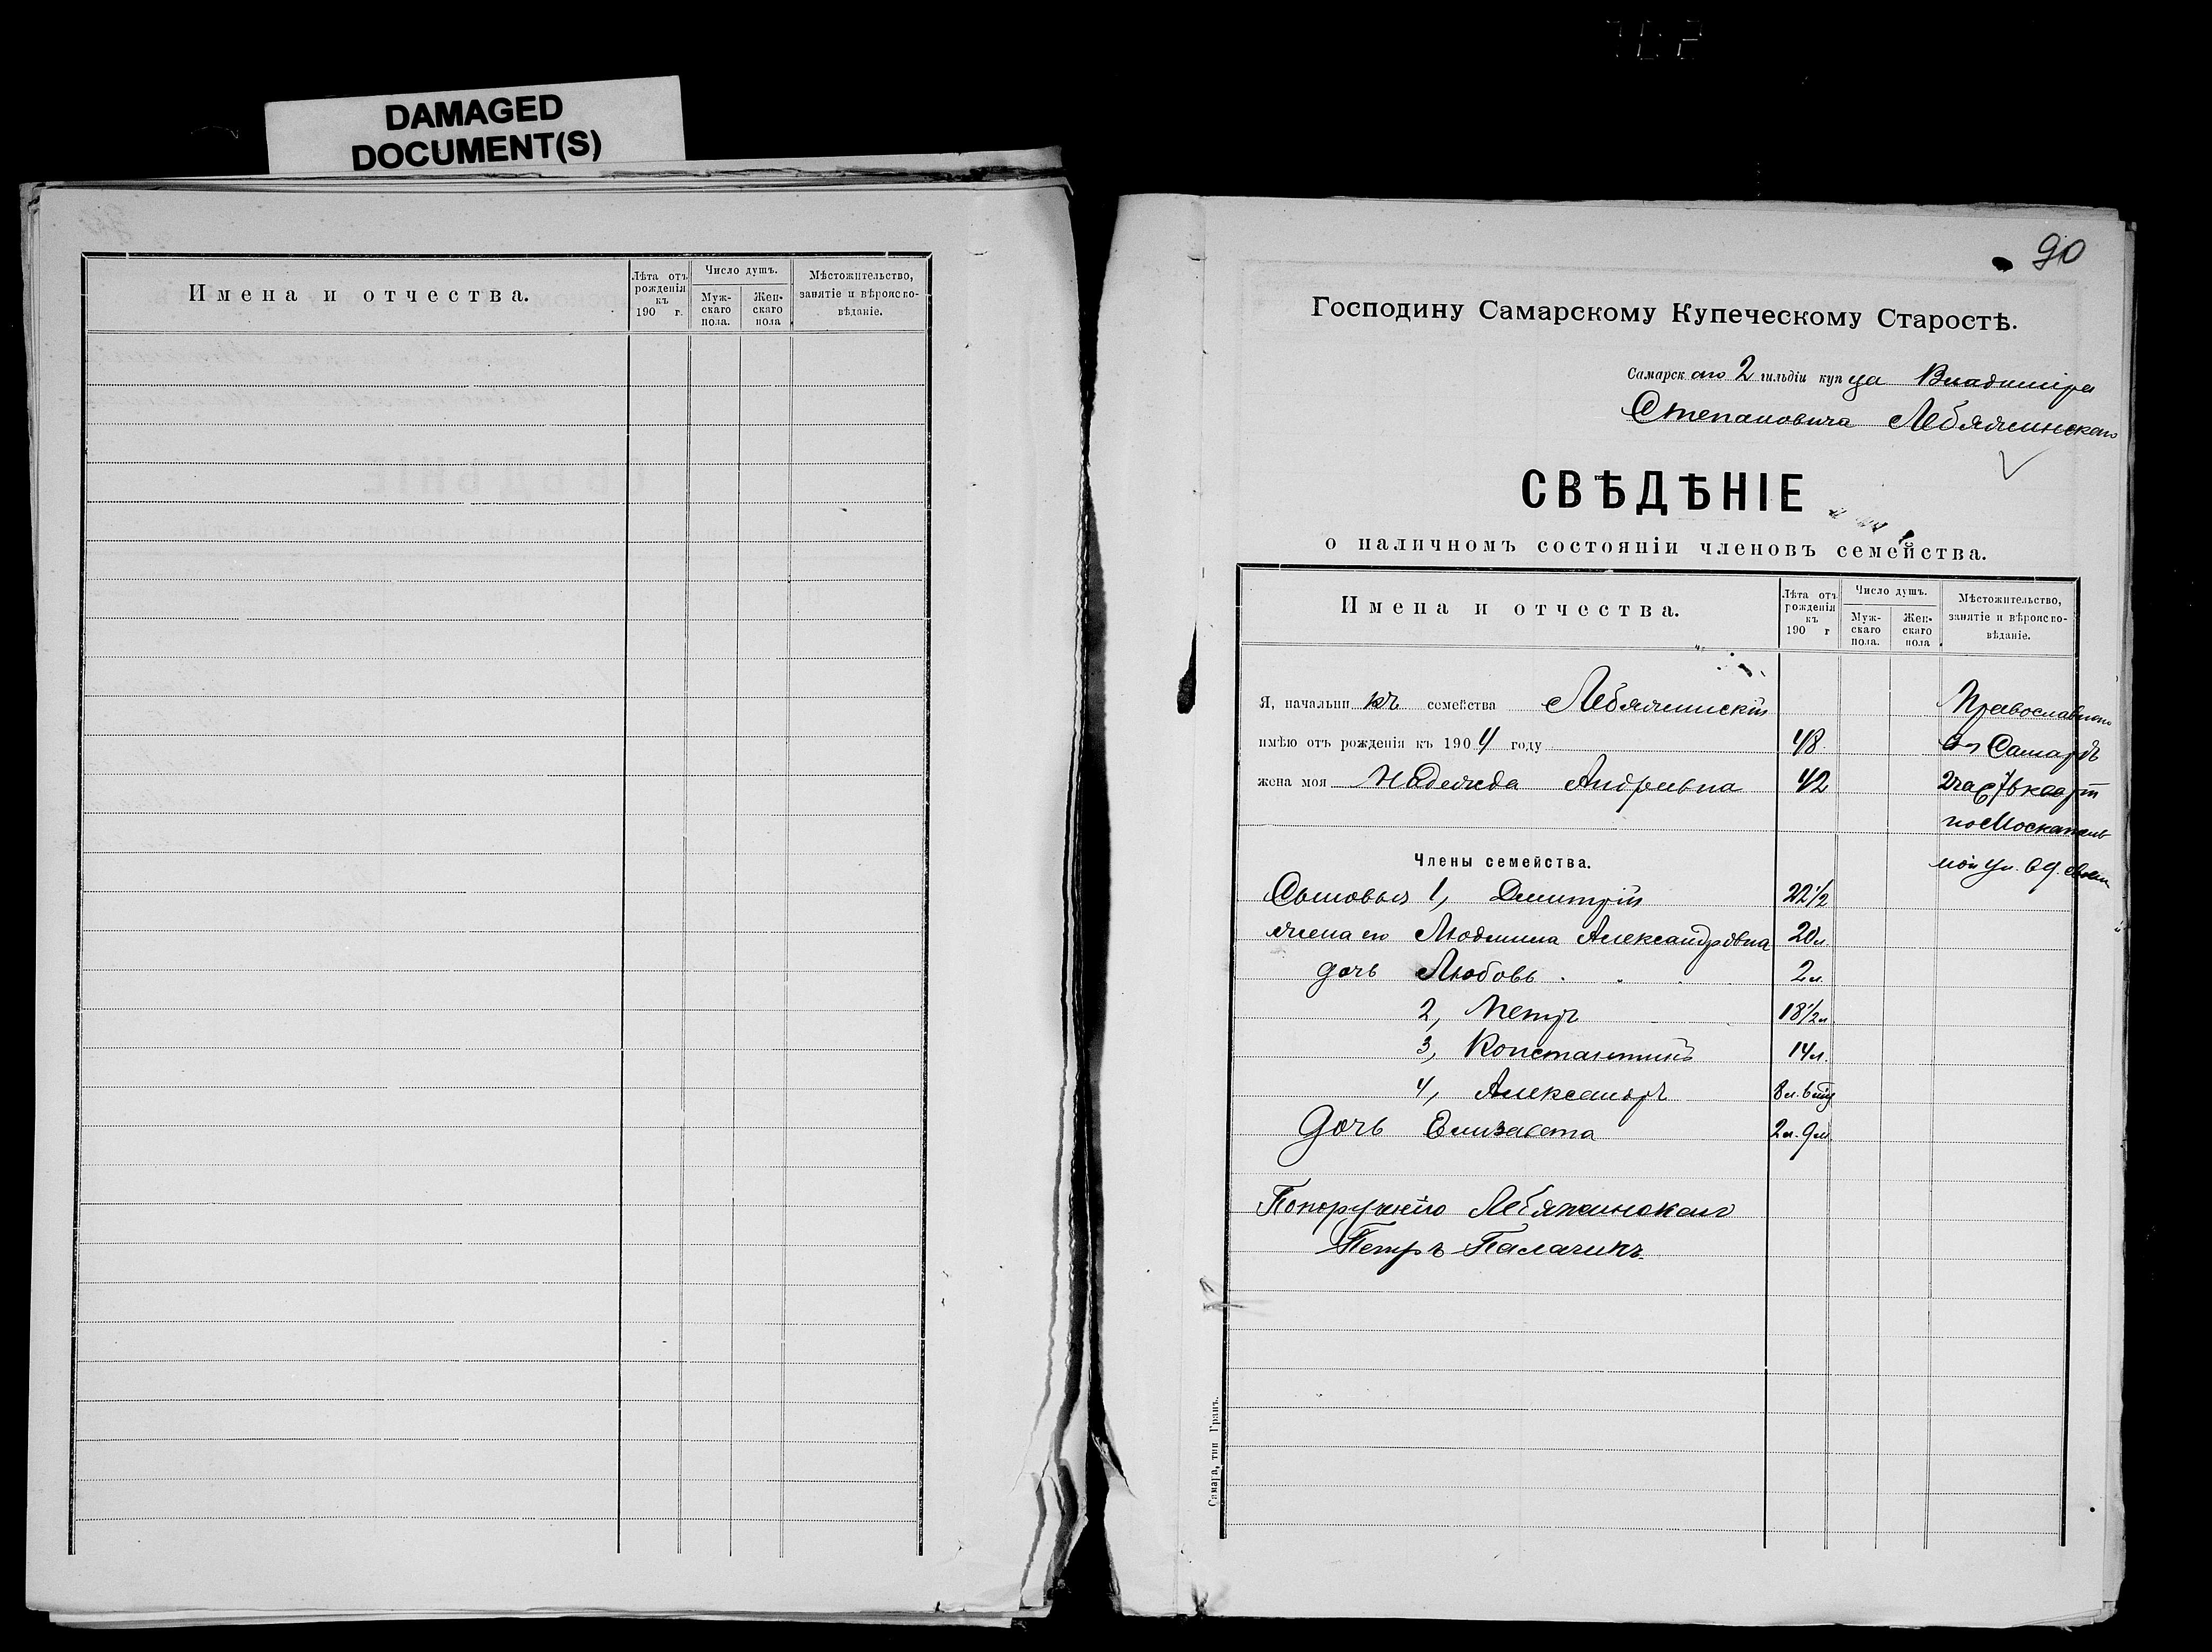 DAMAGED
DOCUMENT(S)
Имена и отчества.
Лѣта отъ рожденія къ 190 г.
Число душъ.
Мужскаго пола.
Женскаго пола
Мѣстожительство, занятіе и вѣроисповѣданіе.
90
Господину Самарскому Купеческому Старостѣ.
Самарскаго 2 гильдіи купца Владиміра
Степановича Лебяжинскаго
СВѢДѢНІЕ
о наличномъ состояніи членовъ семейства.
Имена и отчества.
Лѣта отъ рожденія къ 190 г
Число душъ.
Мужскаго пола.
Женскаго пола
Мѣстожительство, занятіе и вѣроисповѣданіе.
Я, начальникъ семейства Лебяжинскій Православнаго
имѣю отъ рожденія къ 1904 году 48 въ Самарѣ
жена моя Надежда Андреевна 42 2 час 76 кварт
по Москатель
Члены семейства.
ной ул. в д.
Сыновья 1, Дмитрій 22 1/2
жена его Людмила Александровна 20 л
дочь Любовь 2 л.
2, Петръ 18 1/2 л
3, Константинъ 14 л.
4, Александръ 8 л. 6 мц
Дочь Елизавета 2 л. 9 м
Попорученію Лебяжинскаго
Петръ Палачикъ
Самара, тип Гранъ.